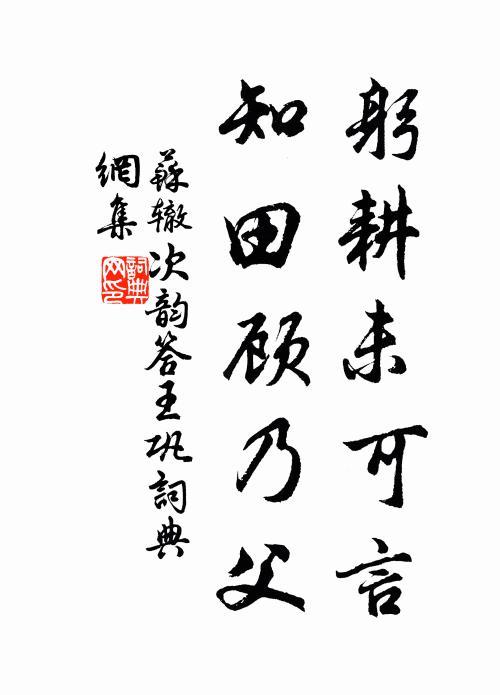 躬耕未可言
知田顾乃父
蘇辙次韵答王巩詞典
網集
詞典
网印